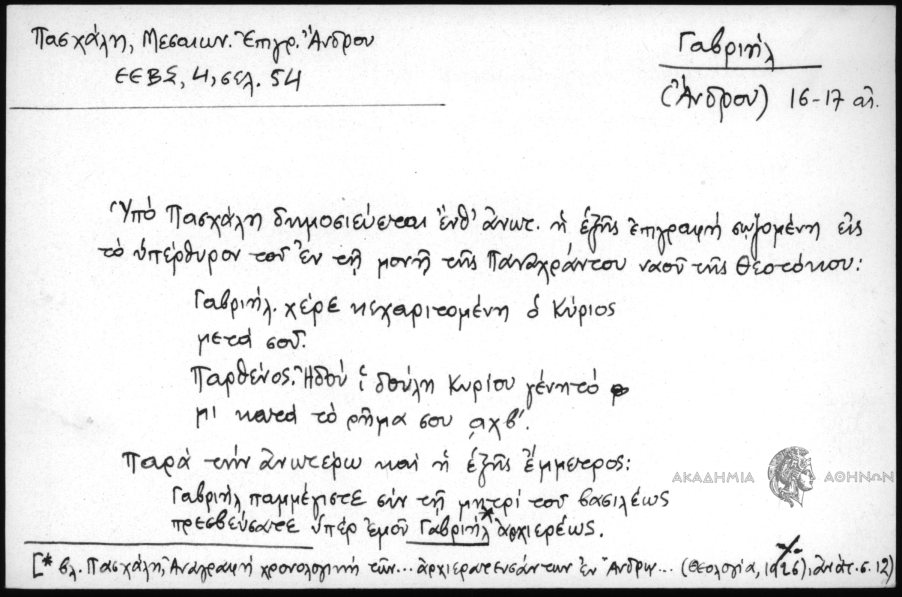 Πασχάλη, Μεσαιων. Ἐπιγρ. Ἄνδρου
ΕΕΒΣ, 4, σελ. 54
Γαβριήλ
(Ἄνδρου) 16-17 αἰ.
Ὑπό Πασχάλη δημοσιεύεται ἔνθ' ἀνωτ. ἡ ἑξῆς ἐπιγραφή σῳζομένη εἰς
τὸ ὑπέρθυρον τοῦ ἐν τῇ μονῇ τῆς Παναχράντου ναοῦ τῆς Θεοτόκου:
Γαβριήλ. χέρε κεχαριτομένη ὁ Κύριος
μετά σοῦ.
Παρθένος. Ἠδού ἱ δούλη Κυρίου γένητό
μι κατά τὸ ρῆμα σου ͵αχβ'.
Παρά τήν ἀνωτέρω καί ἡ ἑξῆς ἔμμετρος:
Γαβριήλ παμμέγιστε σύν τῇ μητρί τοῦ βασιλέως
πρεσβεύσατε ὑπέρ ἐμοῦ Γαβριήλ* ἀρχιερέως.
[* βλ. Πασχάλη, Ἀναγραφή χρονολογική τῶν... ἀρχιερατευσάντων ἐν Ἄνδρῳ... (Θεολογία, 1926), ἀνάτ. σ. 12)
ΑΚΑΔΗΜΙΑ ΑΘΗΝΩΝ